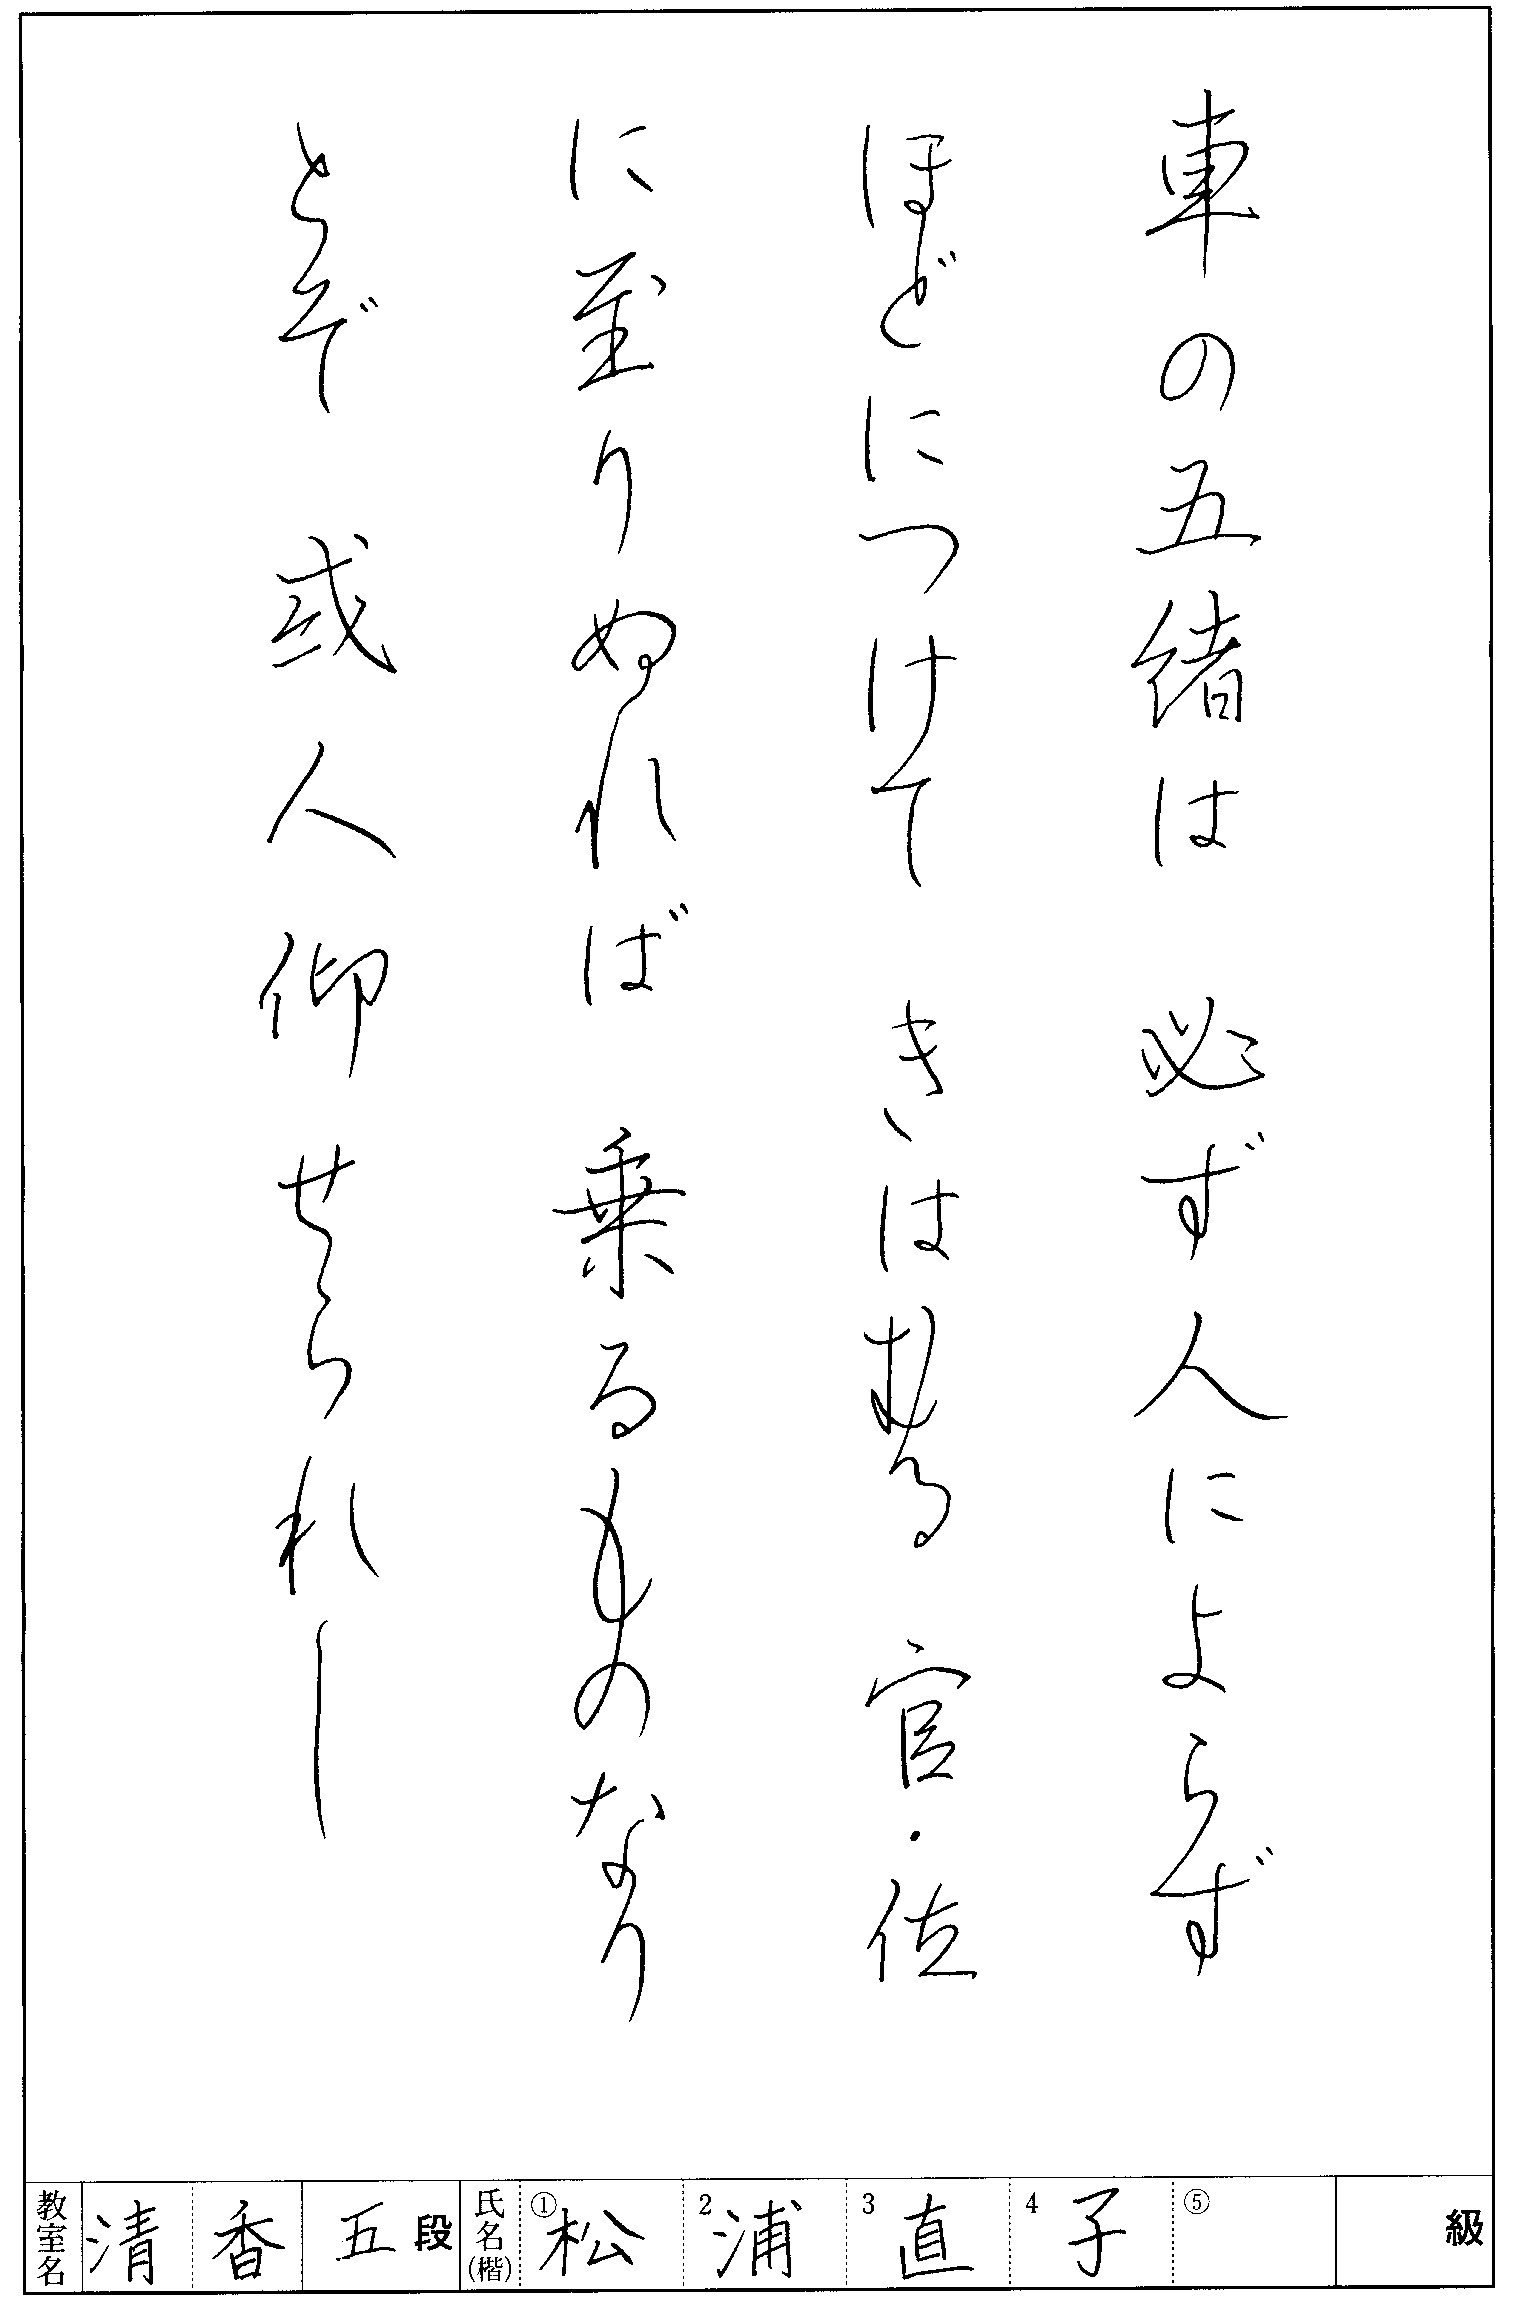 車の五緒は　必ず人によらず
ほどにつけて　きはむる　官・位
に至りぬれば　乗るものなり
とぞ　或人仰せられし
教室名 清香 五段 氏名(楷) ①松 2浦 3直 4子 ⑤ 級